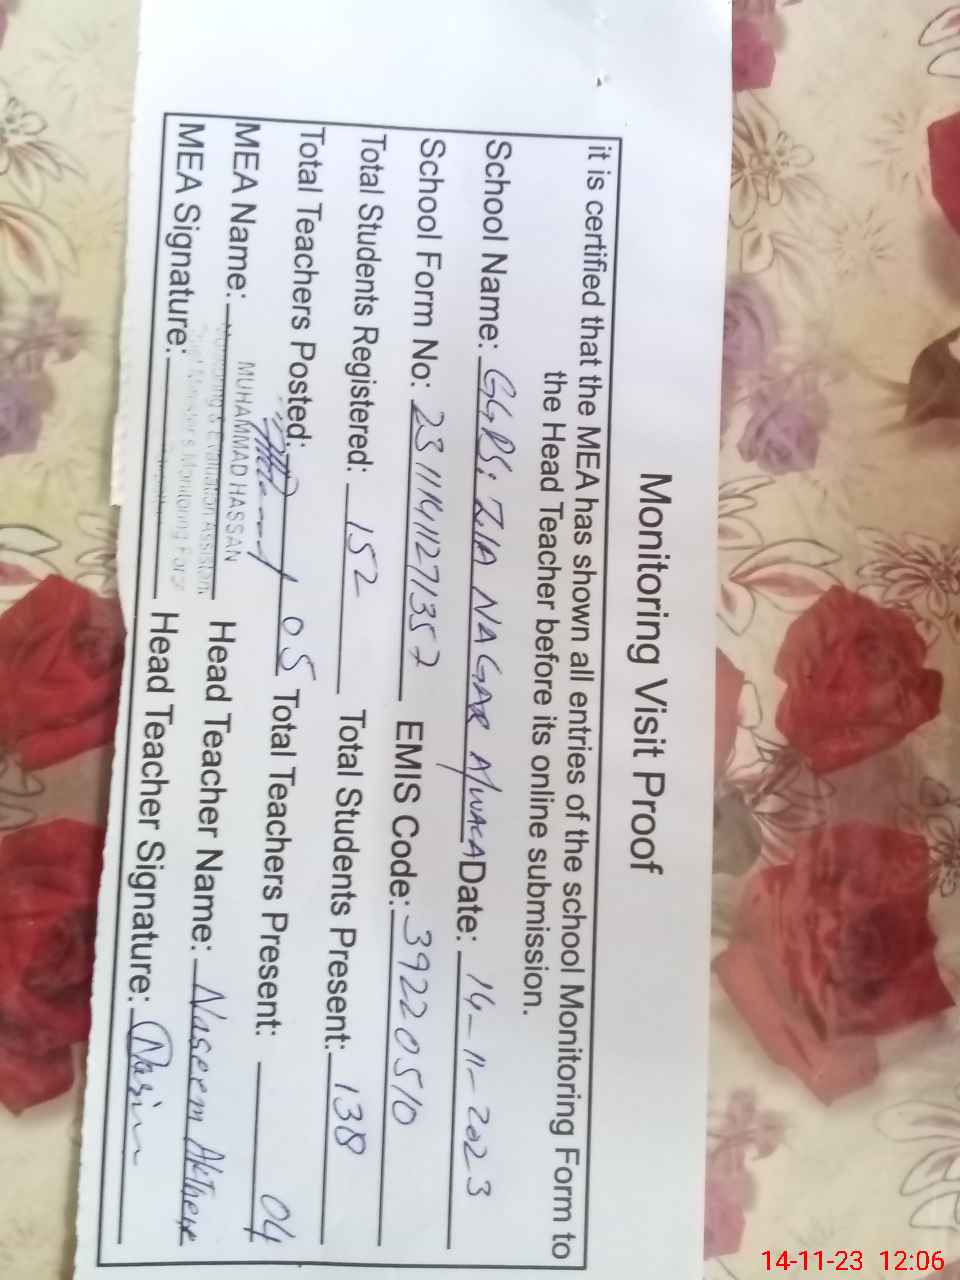 Monitoring Visit Proof
it is certified that the MEA has shown all entries of the school Monitoring Form to
the Head Teacher before its online submission.
School Name: GGPS: ZIA NAGAR Date: 14-11-2023
School Form No: 23111411271357 EMIS Code: 39220510
Total Students Registered: 152 Total Students Present: 138
Total Teachers Posted: 05 Total Teachers Present: 04
MEA Name: MUHAMMAD HASSAN Head Teacher Name: Naseem Akhter
Monitoring & Evaluation Assistant
MEA Signature: Head Teacher Signature:
Chief Minister's Monitoring Force
14-11-23 12:06